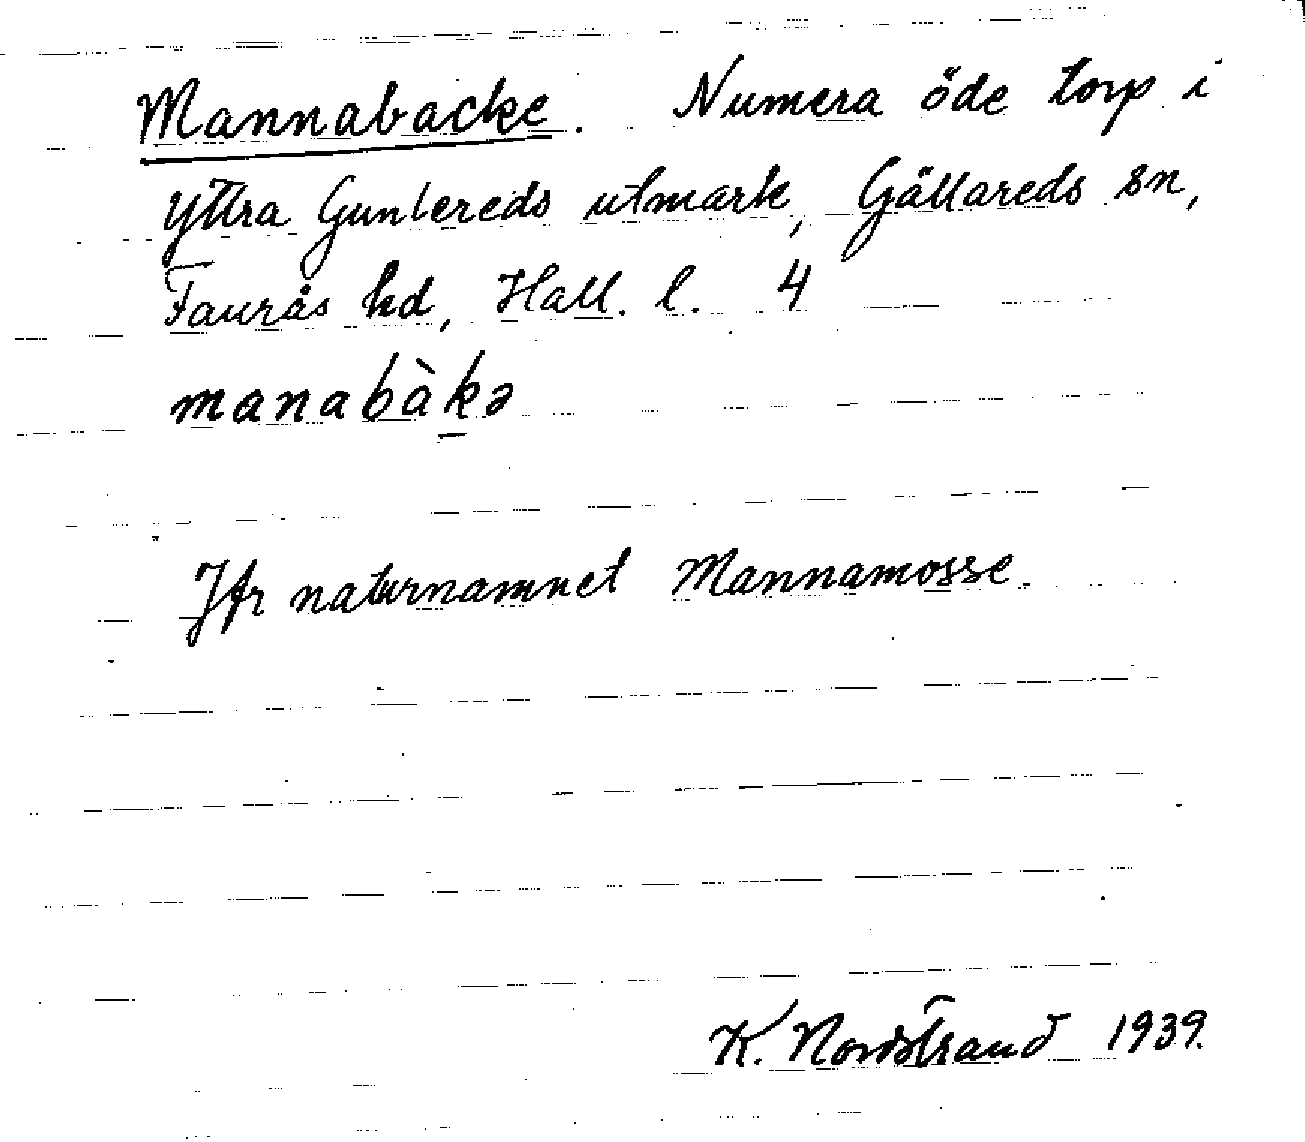 Mannabacke. Numera öde torp i
Yttra Guntereds utmark, Gällareds sn,
Faurås hd, Hall. l. 4
manabàkə
Jfr naturnamnet Mannamosse.
K. Nordstrand 1939.